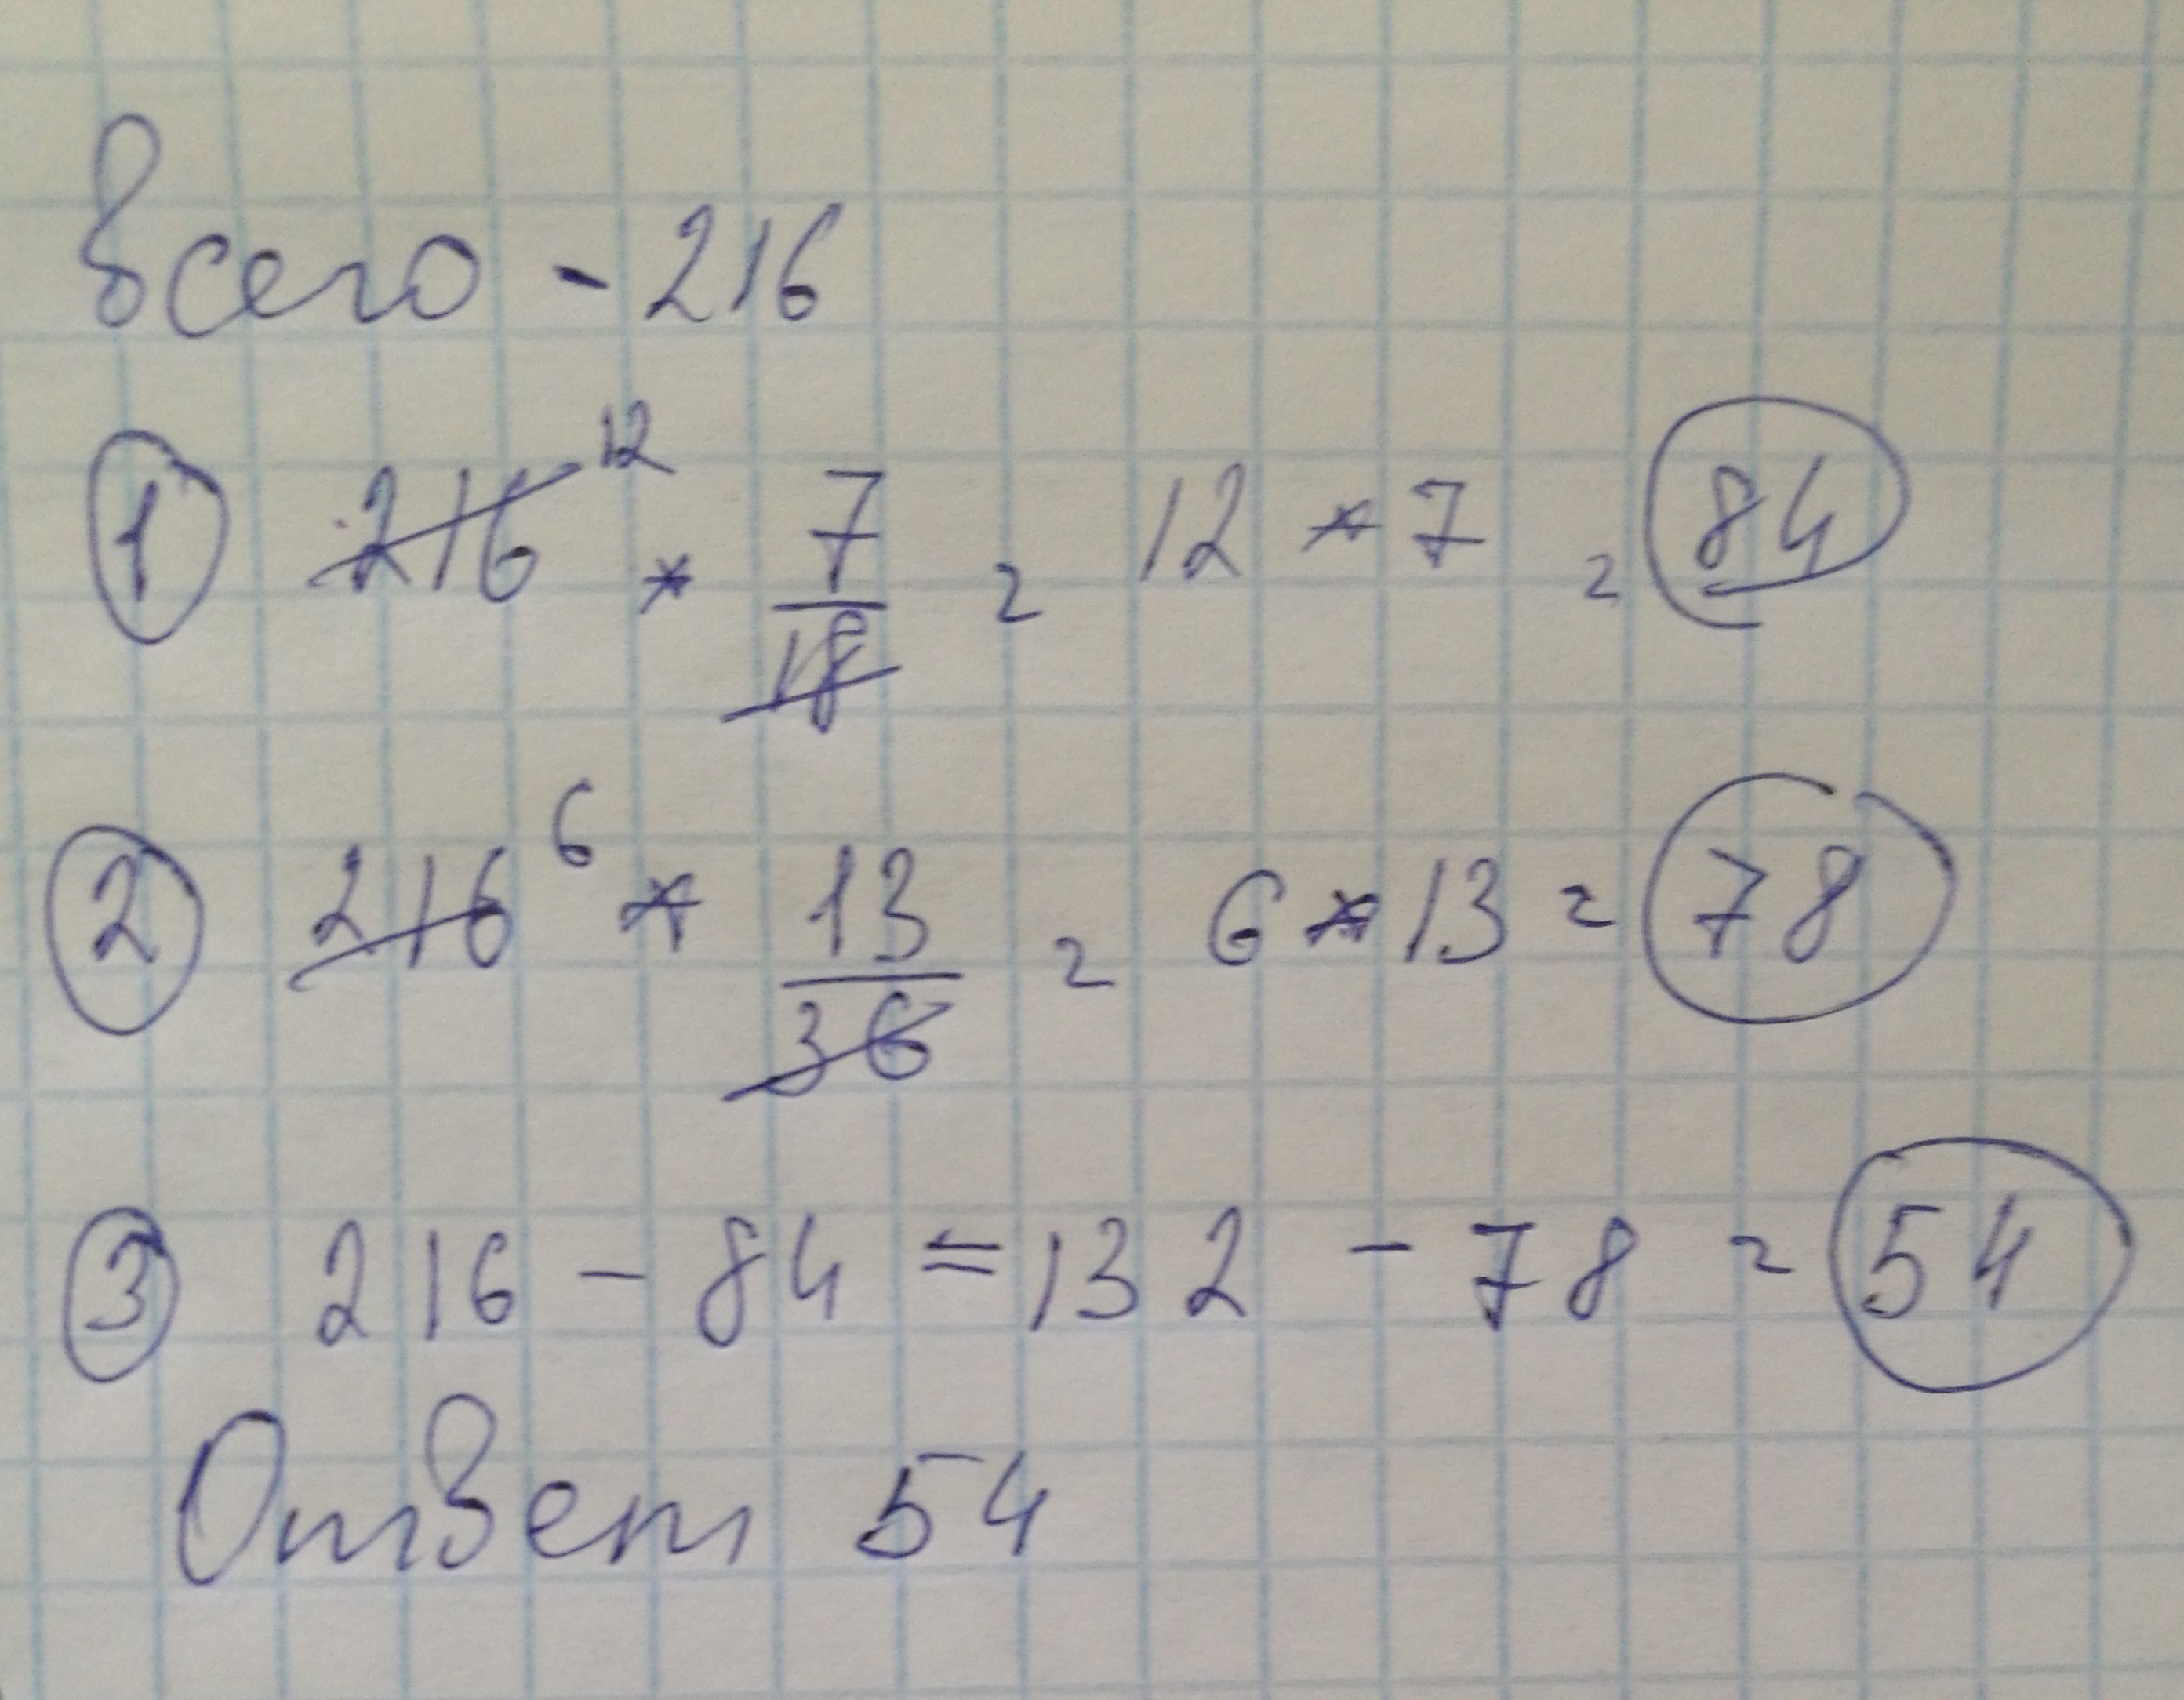 Всего - 216
1 216 12 * 7/18 = 12 * 7 = 84
2 216 6 * 13/36 = 6 * 13 = 78
3 216 - 84 = 132 - 78 = 54
Ответ 54